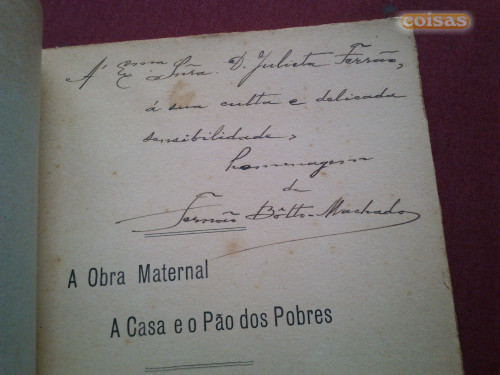 coisas
Á Exma Snra. D. Julieta Ferrão,
á sua culta e delicada
sensibilidade,
homenagem
de
Fernão Bôtto-Machado
A Obra Maternal
A Casa e o Pão dos Pobres